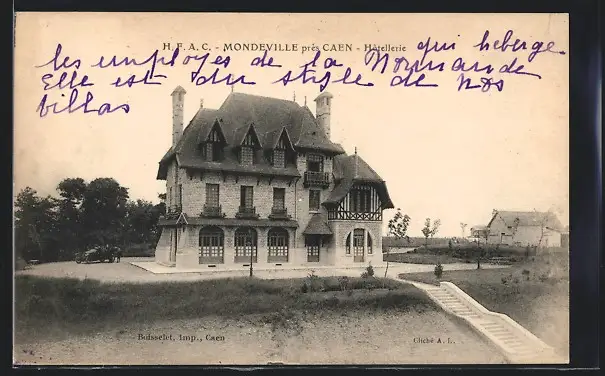 H. F. A. C. - MONDEVILLE près CAEN - Hôtellerie
qui héberge
les employés de la Normande
Elle est du style de nos
villas
Boisselet, Imp., Caen
Cliché A. L.